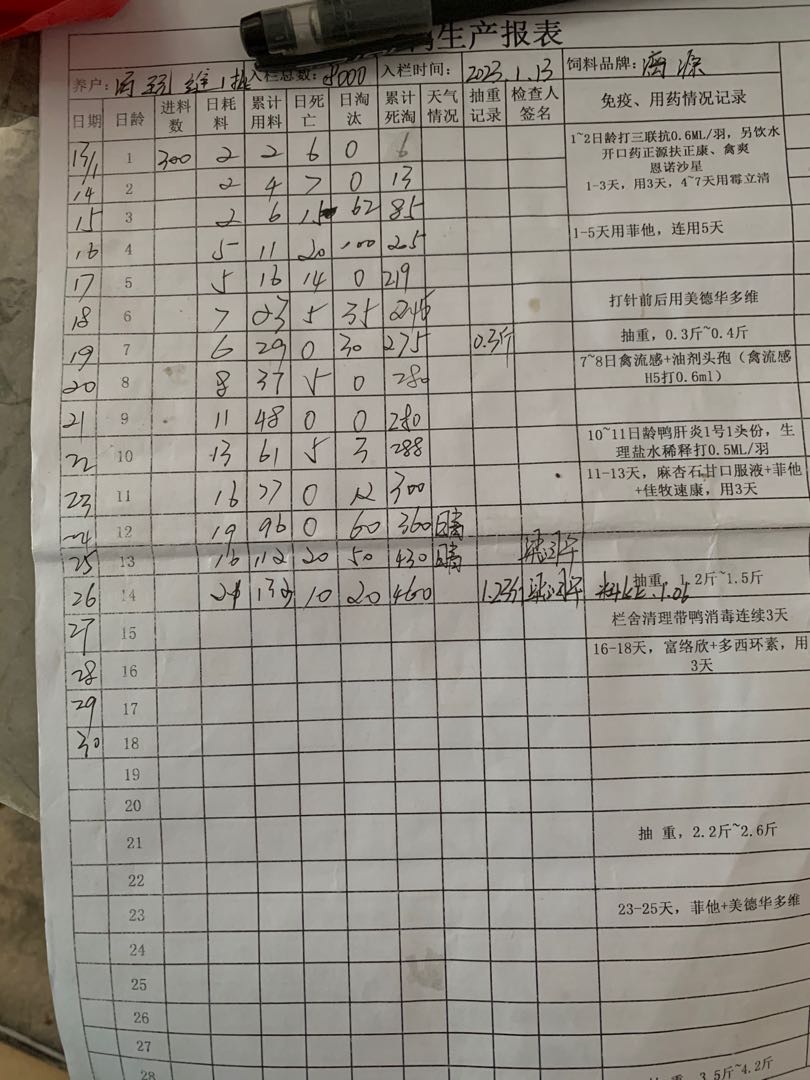 生产报表
养户： 入栏总数：8000 入栏时间： 2023.1.13 饲料品牌：
日期 日龄 进料数 日耗料 累计用料 日死亡 日淘汰 累计死淘 天气情况 抽重记录 检查人签名 免疫、用药情况记录
13/1 1 300 2 2 6 0 6 1~2日龄打三联抗0.6ML/羽，另饮水开口药正源扶正康、禽爽
恩诺沙星
14 2 2 4 7 0 13 1-3天，用3天，4~7天用霉立清
15 3 2 6 15 62 85
16 4 5 11 20 100 205 1-5天用菲他，连用5天
17 5 5 16 14 0 219
18 6 7 23 5 35 245 打针前后用美德华多维
19 7 6 29 0 30 275 0.3斤 抽重，0.3斤~0.4斤
20 8 8 37 5 0 280 7~8日禽流感+油剂头孢（禽流感H5打0.6ml）
21 9 11 48 0 0 280
22 10 13 61 5 3 288 10~11日龄鸭肝炎1号1头份，生理盐水稀释打0.5ML/羽
23 11 16 77 0 12 300 11-13天，麻杏石甘口服液+菲他+佳牧速康，用3天
24 12 19 96 0 60 360 晴
25 13 16 112 20 50 430 晴
26 14 21 133 10 20 460 1.23斤 抽重，1.2斤~1.5斤 料比1.06
27 15 栏舍清理带鸭消毒连续3天
28 16 16-18天，富络欣+多西环素，用3天
29 17
30 18
19
20
21 抽 重，2.2斤~2.6斤
22
23 23-25天，菲他+美德华多维
24
25
26
27
28 抽 重，3.5斤~4.2斤